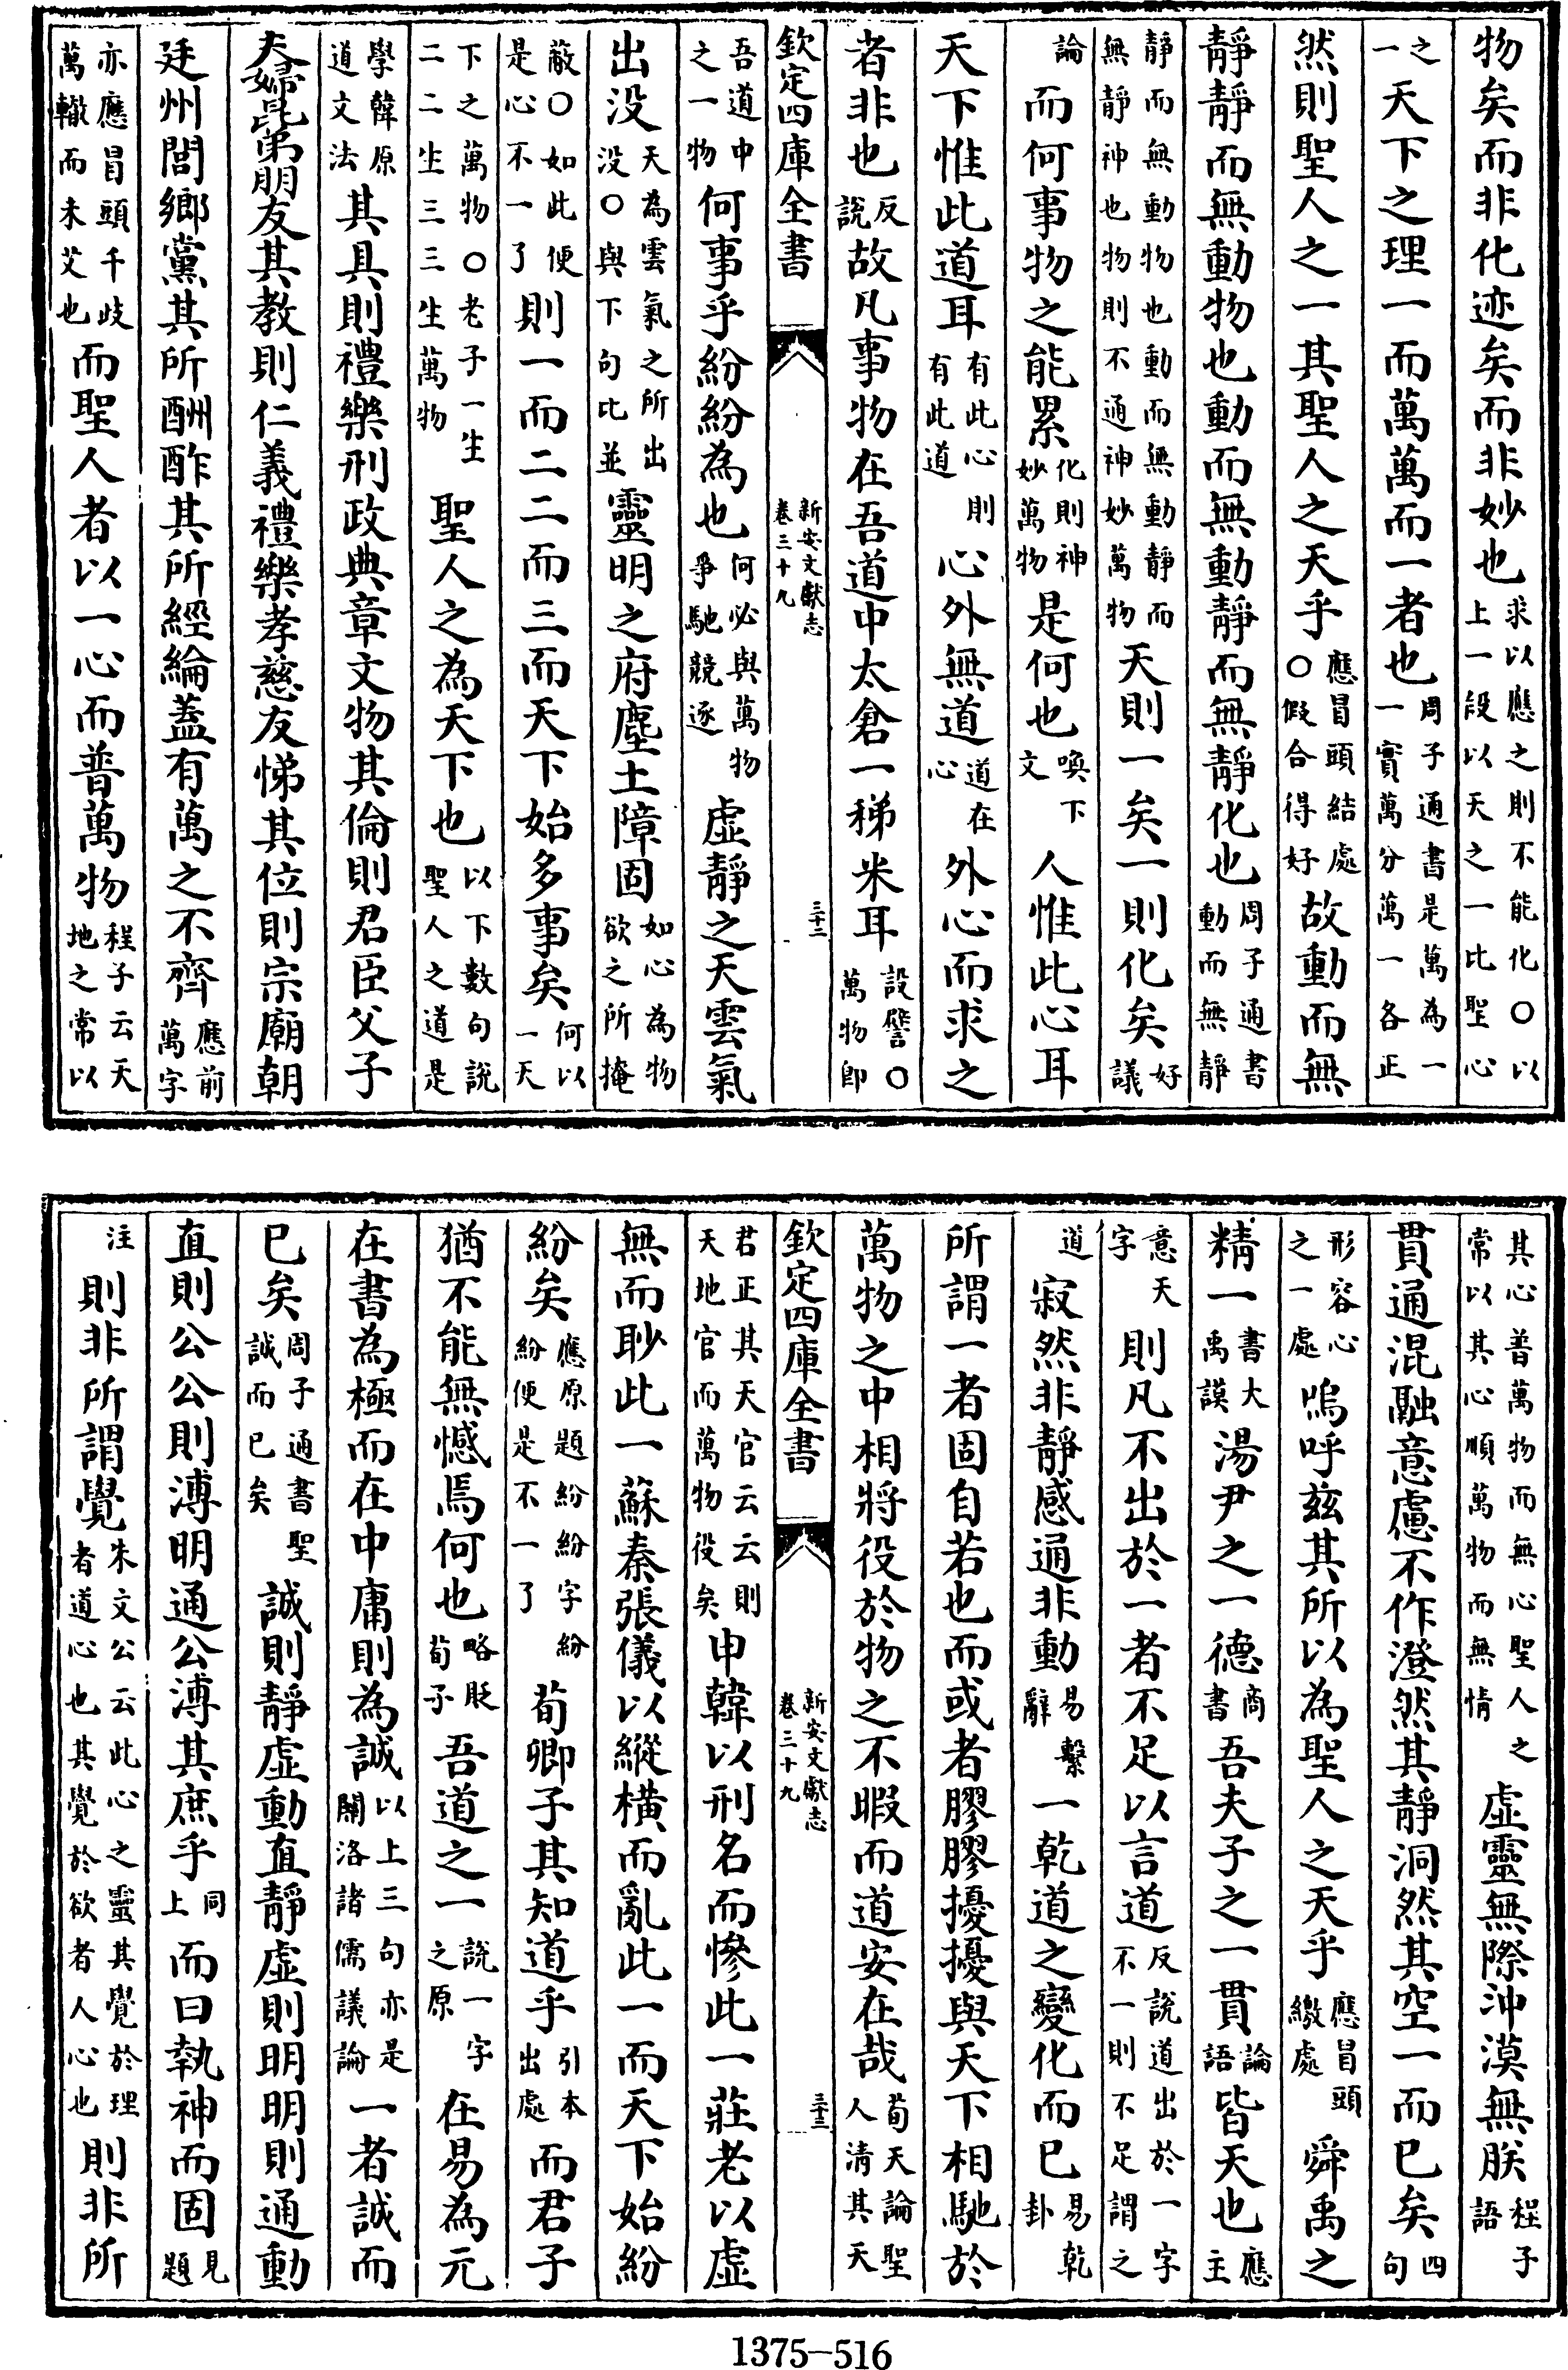 物矣而非化迹矣而非妙也求以應之則不能化○以上一段以天之一比聖心
之一天下之理一而萬萬而一者也周子通書是萬為一一實萬分萬一各正
然則聖人之一其聖人之天乎應冒頭結處○假合得好故動而無
靜靜而無動物也動而無動靜而無靜化也周子通書動而無靜
靜而無動物也動而無動靜而無靜神也物則不通神妙萬物天則一矣一則化矣好議
論而何事物之能累化則神妙萬物是何也喚下文人惟此心耳
天下惟此道耳有此心則有此道心外無道道在心外心而求之
者非也反說故凡事物在吾道中太倉一稊米耳設譬○萬物即
欽定四庫全書 新安文獻志卷三十九 三十二
吾道中之一物何事乎紛紛為也何必與萬物爭馳競逐虛靜之天雲氣
出没天為雲氣之所出没○與下句比並靈明之府塵土障固如心為物欲之所掩
蔽○如此便是心不一了則一而二二而三而天下始多事矣何以一天
下之萬物○老子一生二二生三三生萬物聖人之為天下也以下數句說聖人之道是
學韓原道文法其具則禮樂刑政典章文物其倫則君臣父子
夫婦昆弟朋友其教則仁義禮樂孝慈友悌其位則宗廟朝
廷州閭鄉黨其所酬酢其所經綸蓋有萬之不齊應前萬字
亦應冒頭千歧萬轍而未艾也而聖人者以一心而普萬物程子云天地之常以
其心普萬物而無心聖人之常以其心順萬物而無情虛靈無際沖漠無朕程子語
貫通混融意慮不作澄然其靜洞然其空一而已矣四句
形容心之一處嗚呼兹其所以為聖人之天乎應冒頭繳處舜禹之
精一書大禹謨湯尹之一德商書吾夫子之一貫論語皆天也應主
意天字則凡不出於一者不足以言道反說道出於一字不一則不足謂之
道寂然非靜感通非動易繫辭一乾道之變化而已易乾卦
所謂一者固自若也而或者膠膠擾擾與天下相馳於
萬物之中相將役於物之不暇而道安在哉荀天論聖人清其天
欽定四庫全書 新安文獻志卷三十九 三十三
君正其天官云云則天地官而萬物役矣申韓以刑名而慘此一莊老以虛
無而眇此一蘇秦張儀以縱橫而亂此一而天下始紛
紛矣應原題紛紛字紛紛便是不一了荀卿子其知道乎引本出處而君子
猶不能無憾焉何也略貶荀子吾道之一說一字之原在易為元
在書為極而在中庸則為誠以上三句亦是關洛諸儒議論一者誠而
已矣周子通書聖誠而已矣誠則靜虛動直靜虛則明明則通動
直則公公則溥明通公溥其庶乎同上而曰執神而固見題
注則非所謂覺朱文公云此心之靈其覺於理者道心也其覺於欲者人心也則非所
1375—516